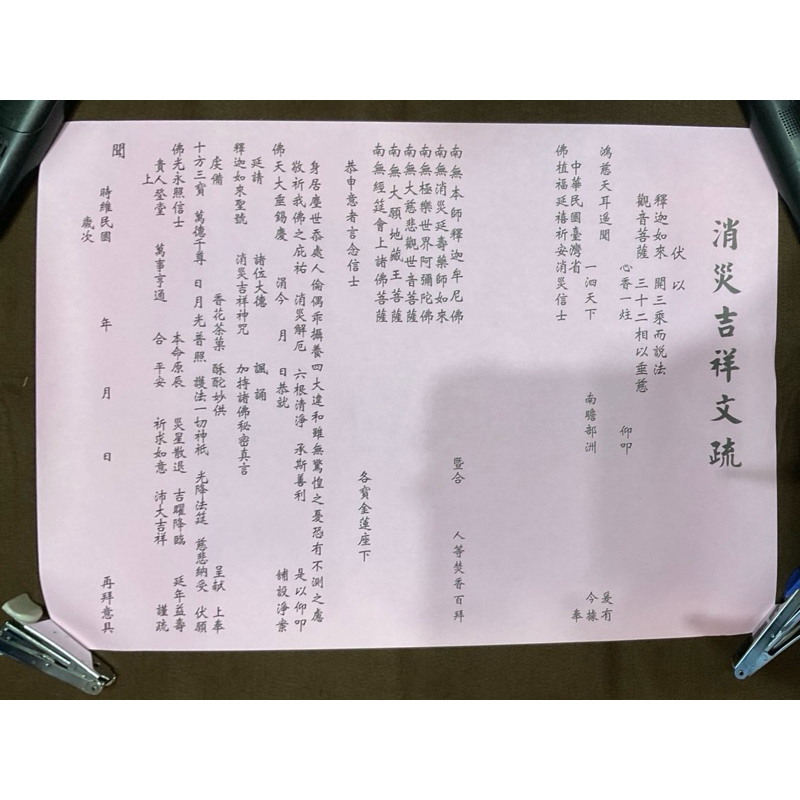 消災吉祥文疏
伏以
釋迦如來 開三乘而說法
觀音菩薩 三十二相以垂慈
心香一炷 仰叩
鴻慈天耳遙聞 爰有
一泗天下 南瞻部洲 今據
中華民國臺灣省
佛植福延禧祈安消災信士 奉
暨合 人等焚香百拜
南無本師釋迦牟尼佛
南無消災延壽藥師如來
南無極樂世界阿彌陀佛
南無大慈悲觀世音菩薩
南無大願地藏王菩薩
南無經筵會上諸佛菩薩
各寶金蓮座下
恭申意者言念信士
身居塵世忝處人倫偶乖攝養四大違和雖無驚惶之憂恐有不測之慮
敬祈我佛之庇祐 消災解厄 六根清淨 承斯善利 是以仰叩
佛天大垂錫慶 涓今 月 日恭就 鋪設淨案
延請 諸位大德 諷誦
釋迦如來聖號 消災吉祥神咒 加持諸佛秘密真言
虔備 香花茶菓 酥酡妙供 呈献 上奉
十方三寶 萬德千尊 日月光普照 護法一切神祇 光降法筵 慈悲納受 伏願
佛光永照信士 本命原辰 災星散退 吉曜降臨 延年益壽
貴人登堂 萬事亨通 合 平安 祈求如意 沛大吉祥 謹疏
上
聞 時維民國 年 月 日 再拜意具
歲次